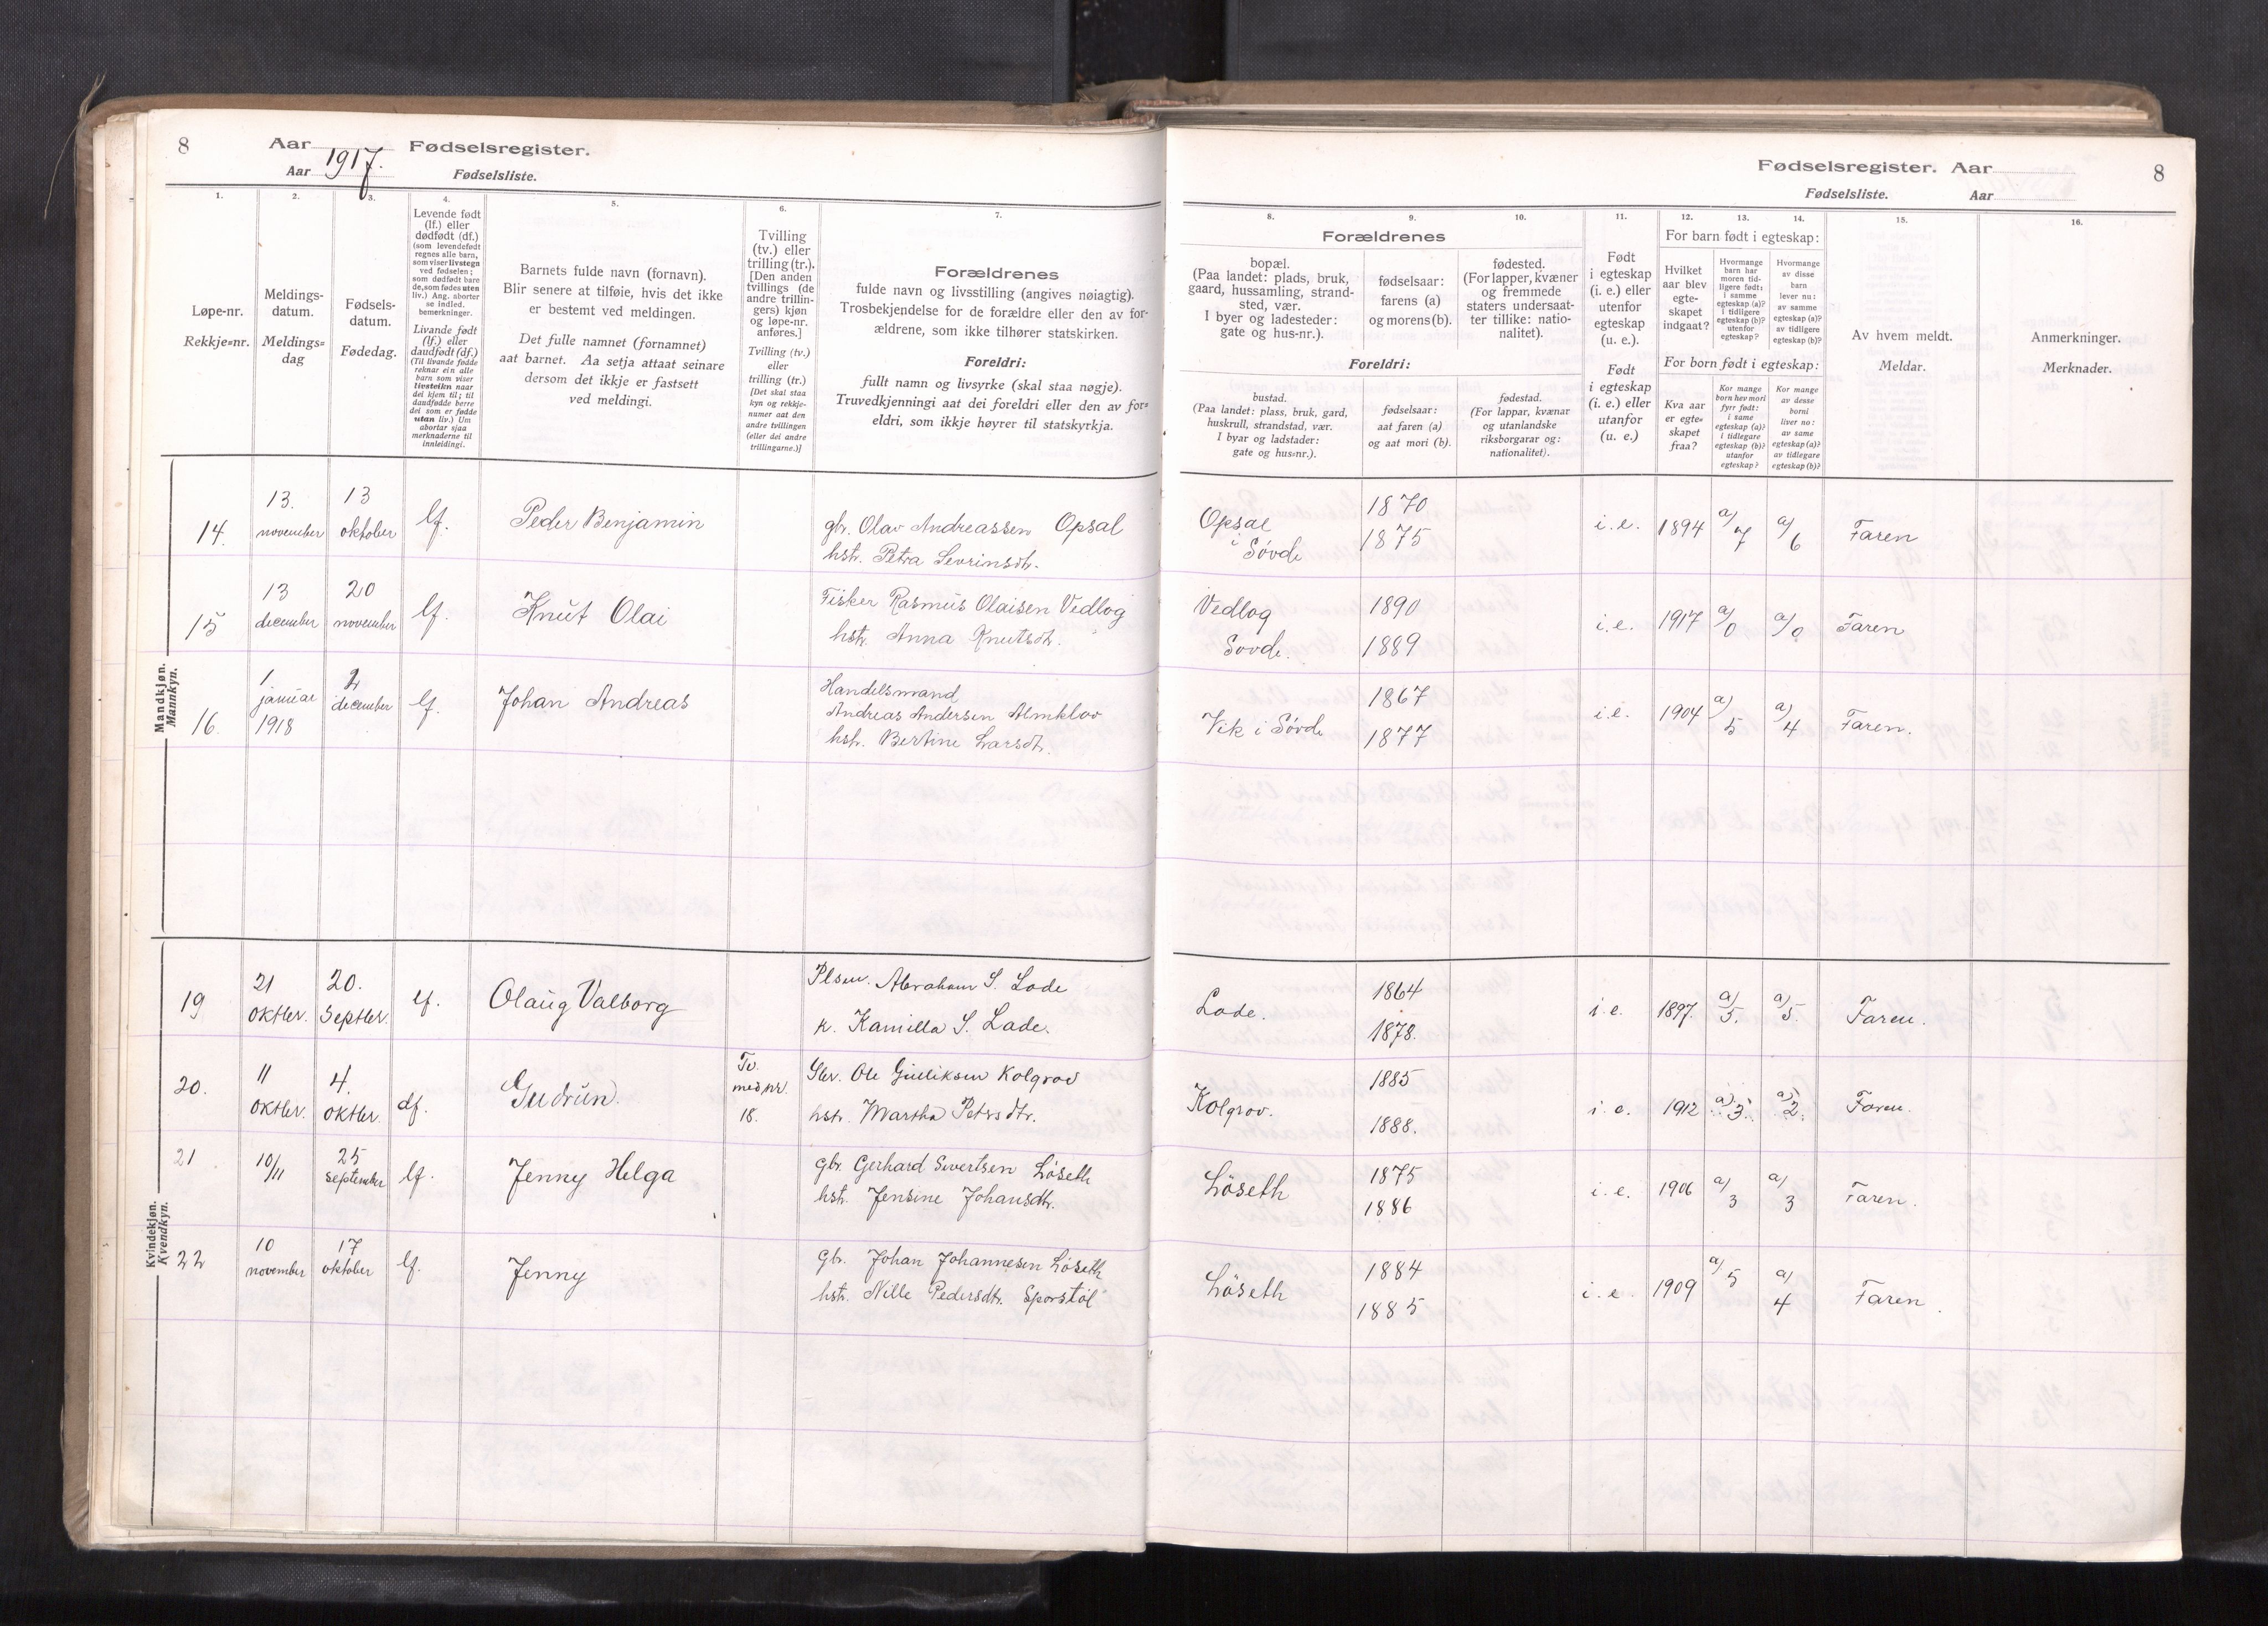 8
Aar 1917. Fødselsregister.
Aar Fødselsliste.
Fødselsregister. Aar
8
Fødselsliste. Aar
1.
Løpe-nr.
Rekkje-nr.
2.
Meldings-
datum.
Meldings-
dag
3.
Fødsels-
datum.
Fødedag.
4.
Levende født
(lf.) eller
dødfødt (df.)
(som levendefødt
regnes alle barn,
som viser livstegn
ved fødselen;
som dødfødt bare
de, som fødes uten
liv.) Ang. aborter
se indled.
bemerkninger.
Livande født
(lf.) eller
daudfødt (df.)
(Til livande fødde
reknar ein alle
barn som viser
livsteikn naar
dei kjem til; til
daudfødde berre
dei som er fødde
utan liv.) Um
abortar sjaa
merknaderne til
innleidingi.
5.
Barnets fulde navn (fornavn).
Blir senere at tilføie, hvis det ikke
er bestemt ved meldingen.
Det fulle namnet (fornamnet)
aat barnet. Aa setja attaat seinare
dersom det ikkje er fastsett
ved meldingi.
6.
Tvilling
(tv.) eller
trilling (tr.).
[Den anden
tvillings (de
andre trillin-
gers) kjøn
og løpe-nr.
anføres.]
Tvilling (tv.)
eller
trilling (tr.)
[Det skal staa
kyn og rekkje-
numer aat den
andre tvillingen
(eller dei andre
trillingarne.)]
7.
Forældrenes
fulde navn og livsstilling (angives nøiagtig).
Trosbekjendelse for de forældre eller den av for-
ældrene, som ikke tilhører statskirken.
Foreldri:
fullt namn og livsyrke (skal staa nøgje).
Truvedkjenningi aat dei foreldri eller den av for-
eldri, som ikkje høyrer til statskyrkja.
8.
9.
10.
Forældrenes
bopæl.
(Paa landet: plads, bruk,
gaard, hussamling, strand-
sted, vær.
I byer og ladesteder:
gate og hus-nr.).
fødselsaar:
farens (a)
og morens (b).
fødested.
(For lapper, kvæner
og fremmede
staters undersaat-
ter tillike: natio-
nalitet).
Foreldri:
bustad.
(Paa landet: plass, bruk, gard,
huskrull, strandstad, vær.
I byar og ladstader:
gate og hus-nr.).
fødselsaar:
aat faren (a)
og aat mori (b).
fødestad.
(For lappar, kvænar
og utanlandske
riksborgarar og:
nationalitet).
11.
Født
i egteskap
(i. e.) eller
utenfor
egteskap
(u. e.).
Født
i egteskap
(i. e.) eller
utanfor
(u. e.)
12.
13.
14.
For barn født i egteskap:
Hvilket
aar blev
egte-
skapet
indgaat?
Hvormange
barn har
moren tid-
ligere født:
i samme
egteskap (a)?
i tidligere
egteskap (b)?
utenfor
egteskap?
Hvormange
av disse
barn
lever nu:
av samme
egteskap (a)?
av tidligere
egteskap (b)?
For born født i egteskap:
Kva aar
er egte-
skapet
fraa?
Kor mange
born hev mori
fyrr født:
i same
egteskap (a)?
i tidlegare
egteskap (b)?
utanfor
egteskap?
Kor mange
av desse
borni
liver no:
av same
egteskap (a)?
av tidlegare
egteskap (b)?
15.
Av hvem meldt.
Meldar.
16.
Anmerkninger.
Merknader.
Mandkjøn.
Mannkyn.
14. 13. november 13 oktober lf. Peder Benjamin
gbr. Olav Andreassen Opsal
hstr. Petra Sevrinsdtr.
Opsal i Søvde 1870 1875 i. e. 1894 a/7 a/6 Faren
15 13 december 20 november lf. Knut Olai
Fisker Rasmus Olaisen Vedlog
hstr. Anna Knutsdtr. "
Vedlog Sovde. 1890 1889 i.e. 1917 a/0 a/0 Faren
16. 1 januar 1918 2 december lf. Johan Andreas
Handelsmand
Andreas Andersen Almklov
hstr. Bertine Larsdtr.
Vik i Søvde 1867 1877 i.e. 1904 a/5 a/4 Faren.
Kvindekjøn.
Kvendkyn.
19 21 Oktbr. 20. Septbr. lf. Olaug Valborg
Abraham S. Lade
k. Kamilla S. Lade.
Lade. 1864 1878. i. e. 1897. a/5. a/5. Faren.
20. 11 Oktbr. 4. Oktbr. df. Gudrun. Tv. med nr. 18.
Gbr. Ole Gulliksen Kolgrov
hstr. Martha Petersdtr.
Kolgrov. 1885 1888. i. e. 1912 a) 3. a) 2. Faren.
21 10/11 25 september lf. Jenny Helga
gbr. Gerhard Sivertsen Løseth
hstr. Jensine Johansdtr.
Løseth 1875 1886 i. e. 1906 a/3 a/3 Faren.
22 10 november 17 oktober lf. Jenny
gbr. Johan Johannesen Løseth
hstr. Nille Pedersdtr. Sporstøl
Løseth 1884 1885 i. e. 1909 a/5 a/4 Faren.